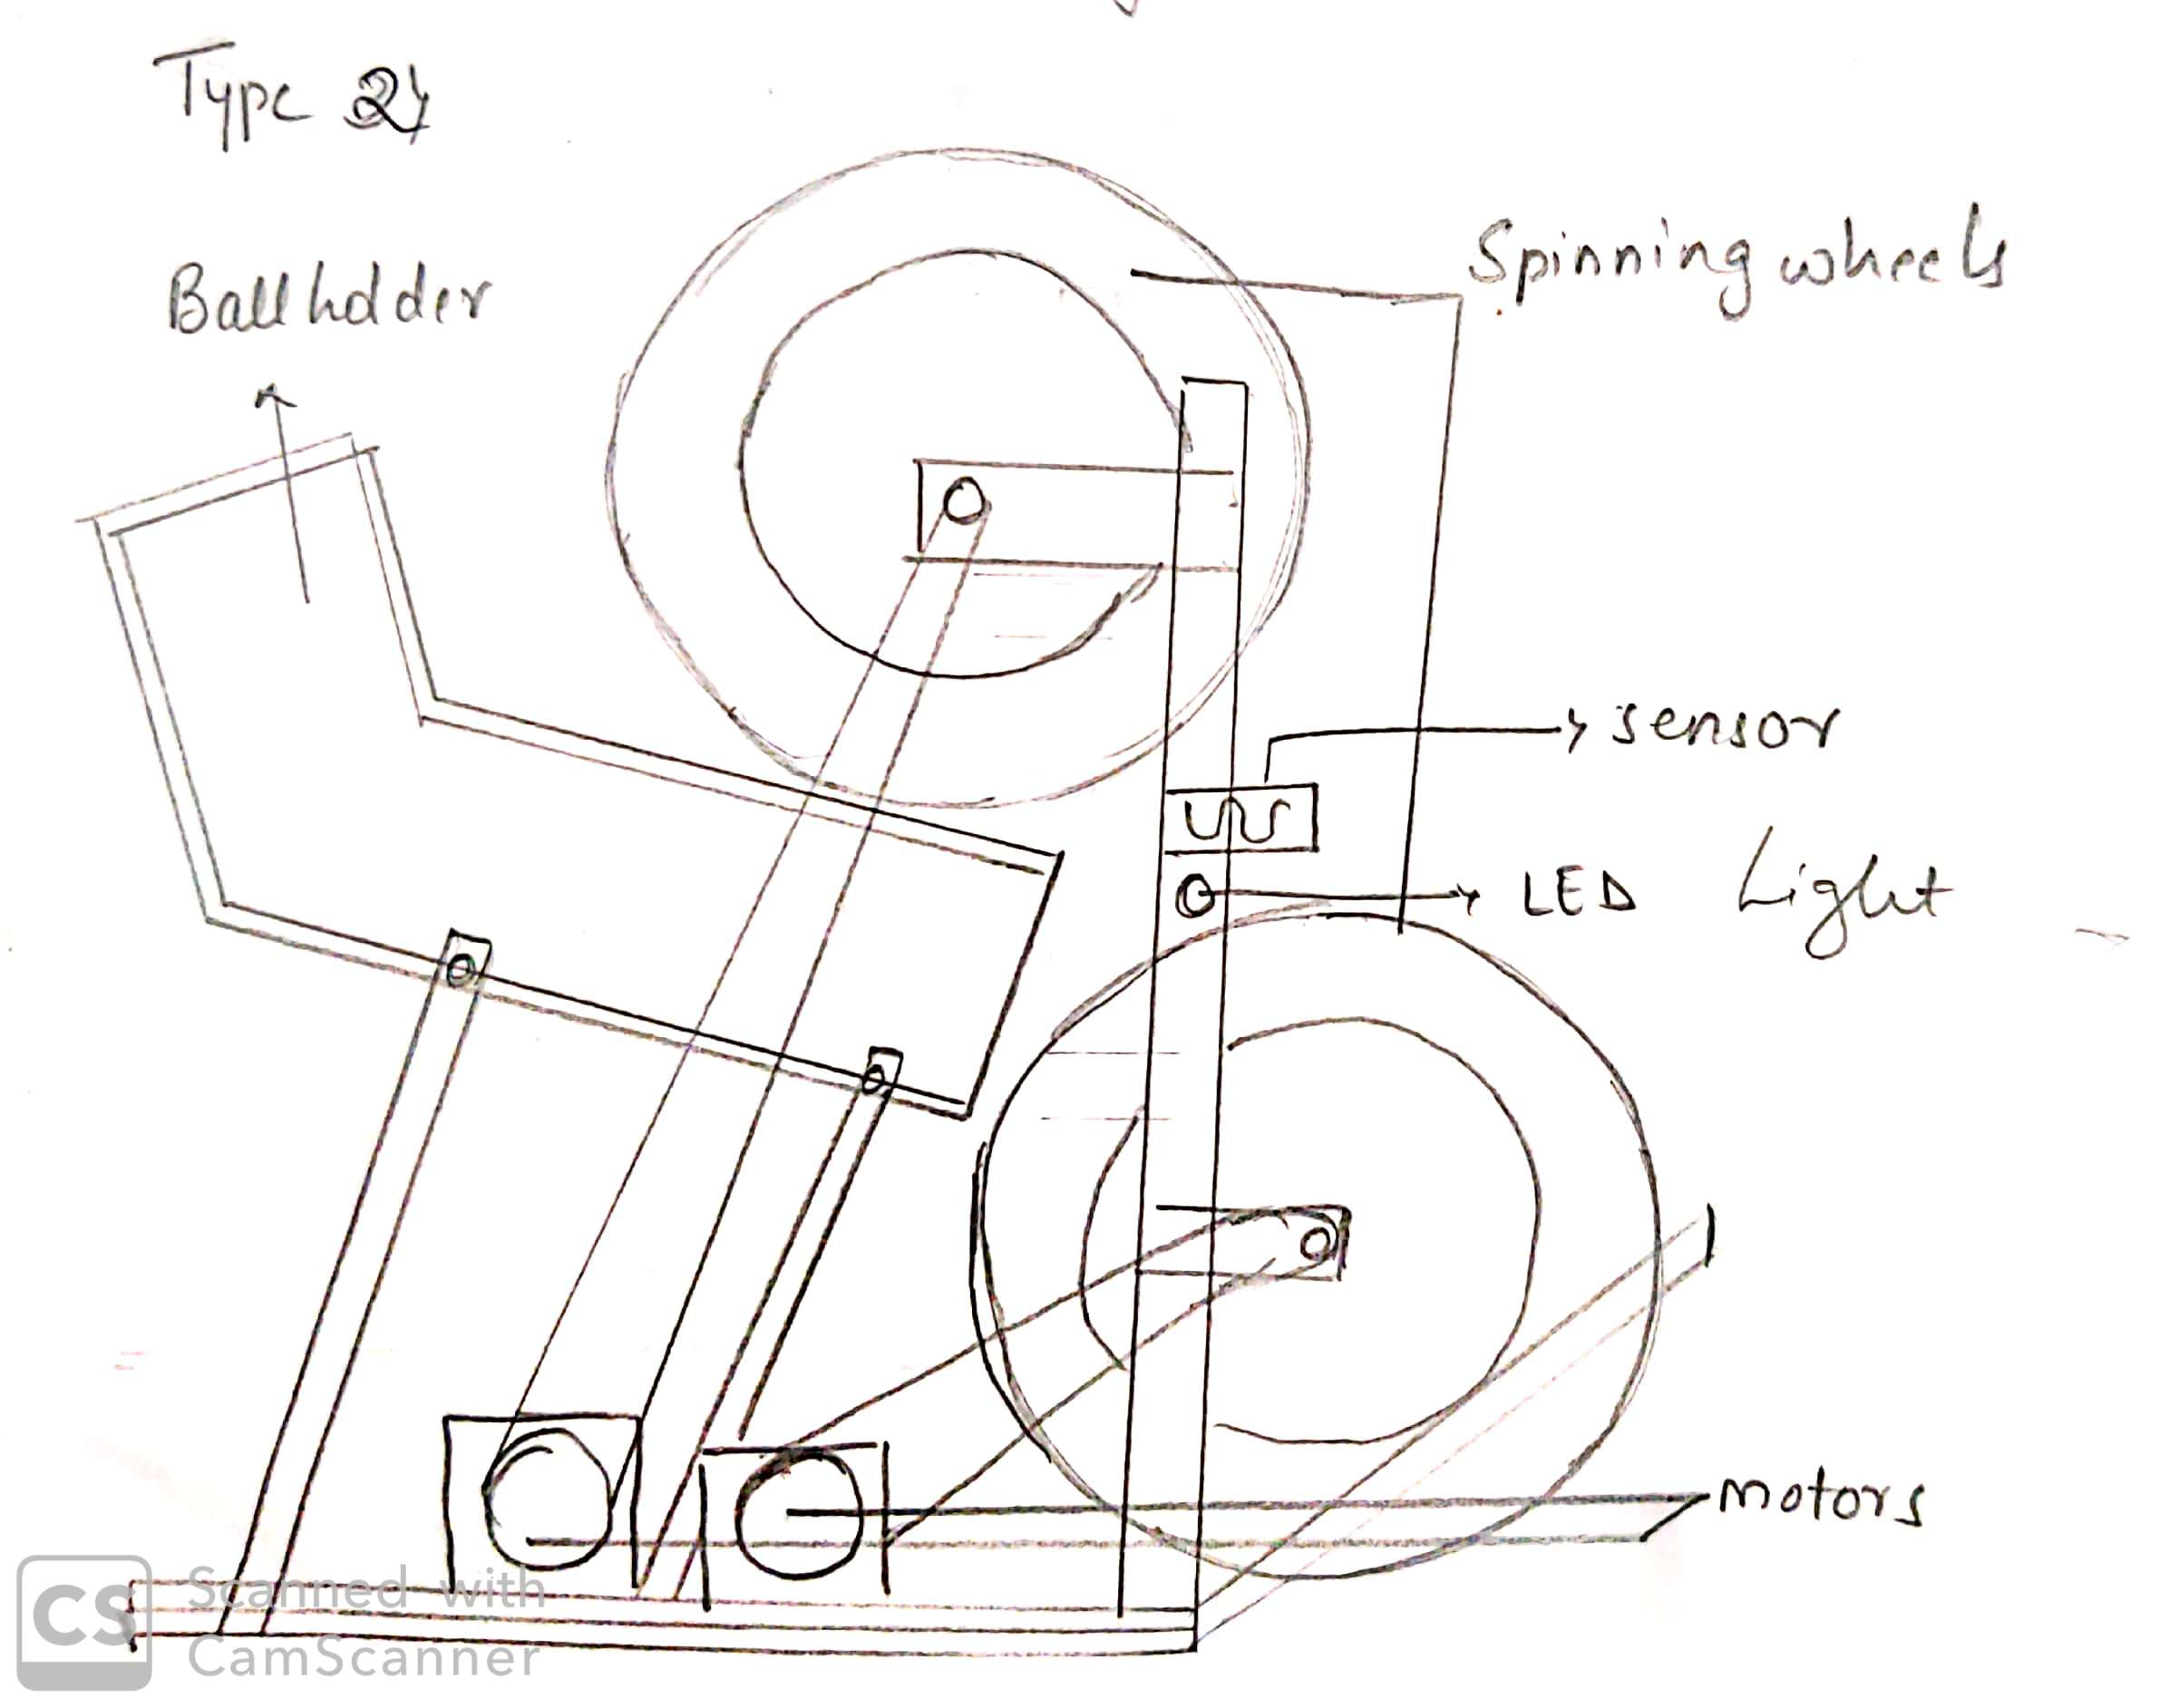 Type 2)
Ball holder
Spinning wheels
sensor
LED Light
motors
CS Scanned with
CamScanner